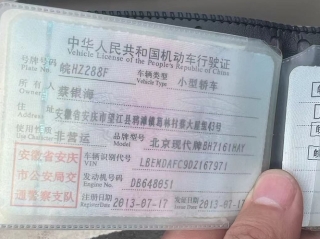 中华人民共和国机动车行驶证
Vehicle License of the People's Republic of China
号牌号码 Plate No. 皖HZ288F 车辆类型 Vehicle Type 小型轿车
所有人 蔡银海
住址 安徽省安庆市望江县鸦滩镇 村蔡大屋组43号
使用性质 非营运 品牌型号 Model 北京现代牌BH7161MAY
安徽省安庆市公安局交通警察支队
车辆识别代号 VIN LBEMDAFC9DZ167971
发动机号码 Engine No. DB648051
注册日期 Register Date 2013-07-17 发证日期 Issue Date 2013-07-17